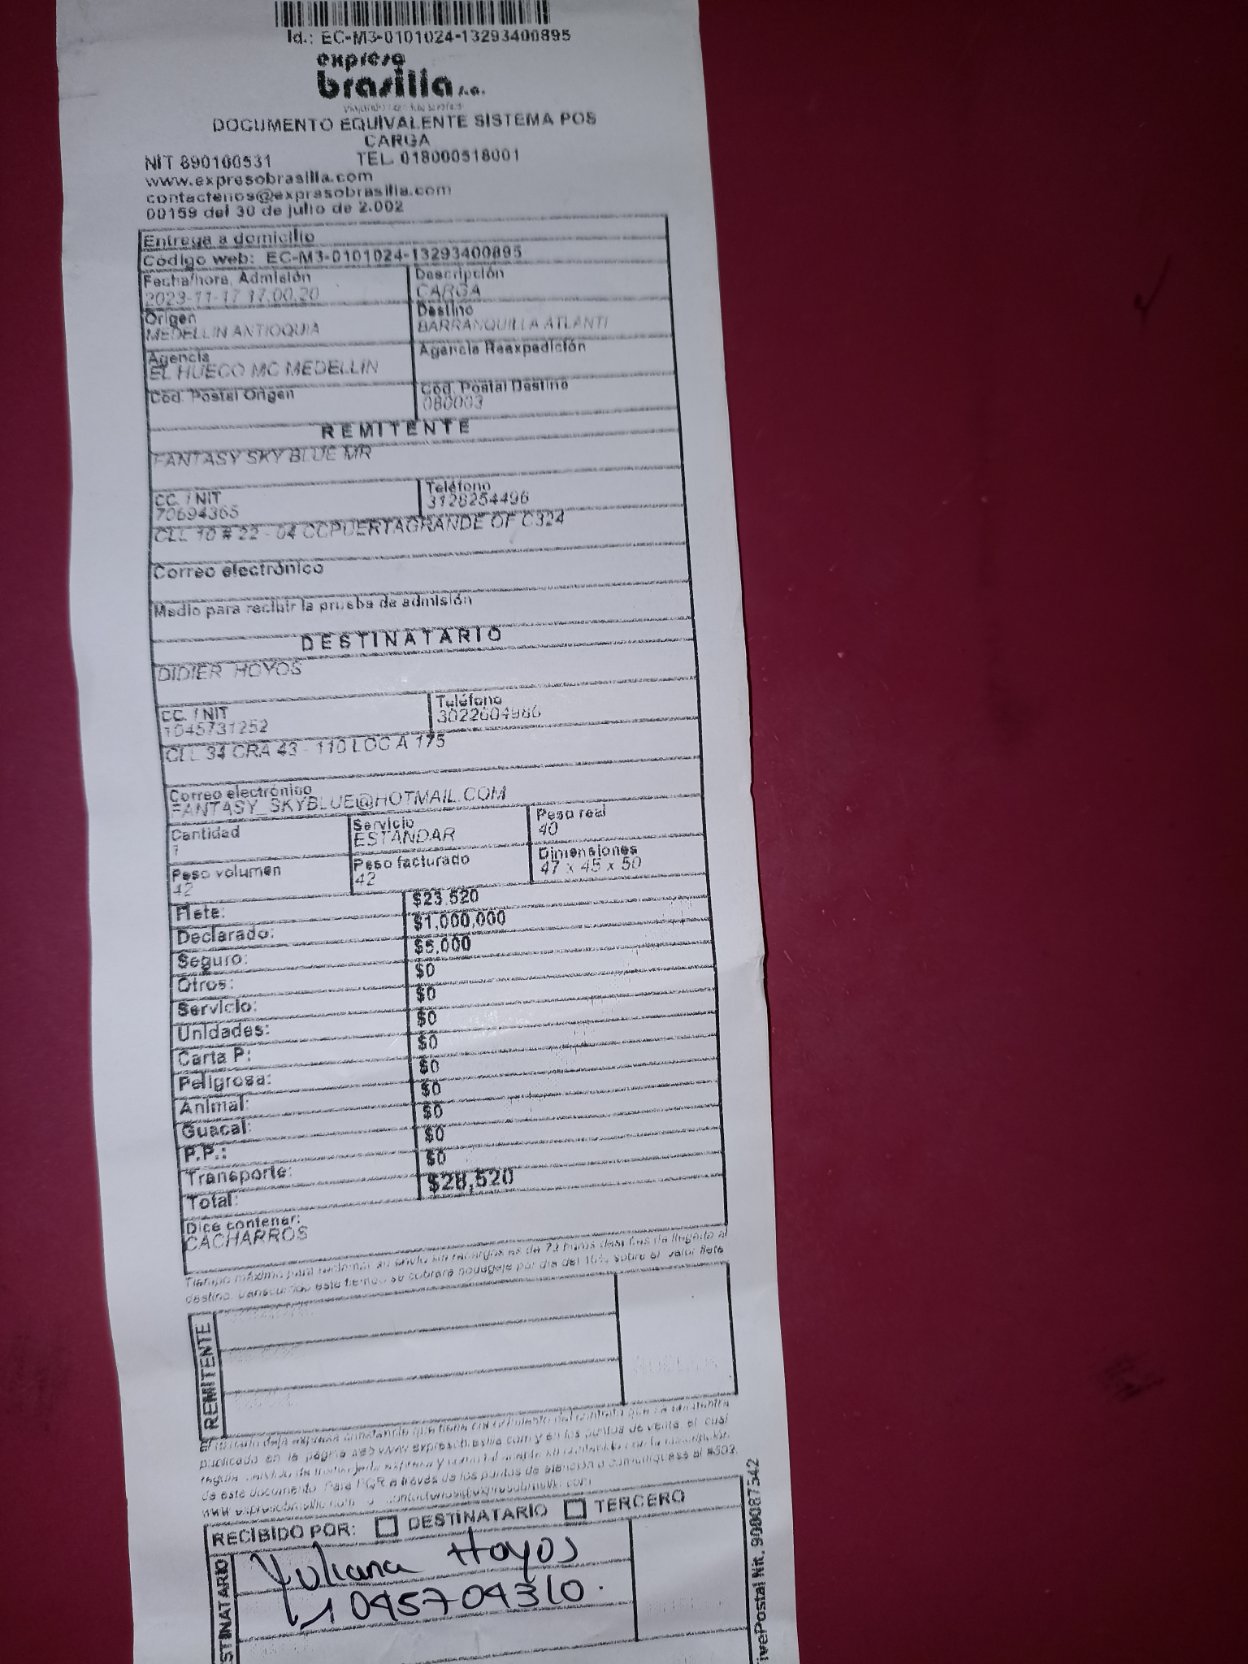 Id.: EC-M3-0101024-13293400895
expreso
brasilia s.a.
DOCUMENTO EQUIVALENTE SISTEMA POS
CARGA
NIT 890100531 TEL. 018000518001
www.expresobrasilia.com
contactenos@expresobrasilia.com
00159 del 30 de julio de 2.002
Entrega a domicilio
Código web: EC-M3-0101024-13293400895
Fecha/hora. Admisión Descripción
2023-11-17 17:00:20 CARGA
Origen Destino
MEDELLIN ANTIOQUIA BARRANQUILLA ATLANTI
Agencia Agencia Reexpedición
EL HUECO MC MEDELLIN
Cod. Postal Origen Cód. Postal Destino
080003
REMITENTE
FANTASY SKY BLUE MR
CC. / NIT Teléfono
70694365 3128254496
CLL 10 # 22 - 04 CCPUERTAGRANDE OF C324
Correo electrónico
Medio para recibir la prueba de admisión
DESTINATARIO
DIDIER HOYOS
CC. / NIT Teléfono
1045731252 3022604986
CLL 34 CRA 43 - 110 LOC A 175
Correo electrónico
FANTASY_SKYBLUE@HOTMAIL.COM
Cantidad Servicio Peso real
1 ESTANDAR 40
Peso volumen Peso facturado Dimensiones
42 42 47 x 45 x 50
Flete: $23,520
Declarado: $1,000,000
Seguro: $5,000
Otros: $0
Servicio: $0
Unidades: $0
Carta P: $0
Peligrosa: $0
Animal: $0
Guacal: $0
P.P.: $0
Transporte: $0
Total: $28,520
Dice contener:
CACHARROS
Tiempo máximo para reclamar su envío sin recargos es de 72 horas después de llegado al
destino, este tiempo se cobrara bodegaje por día del 10% sobre el valor flete
REMITENTE
publicado en la página web www.expresobrasilia.com y en los puntos de venta, el cual
de este documento. Para PQR a través de los puntos de atención o comuníquese al #502,
RECIBIDO POR: DESTINATARIO TERCERO
STINATARIO
Yuliana Hoyos
1045704310.
ivePostal Nit. 900087542